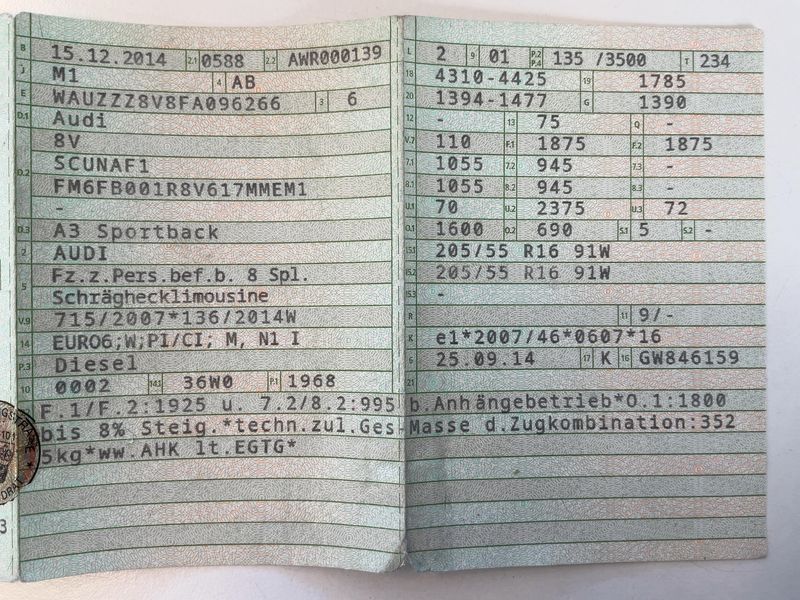 B 15.12.2014 2.1 0588 2.2 AWR000139
J M1 4 AB
E WAUZZZ8V8FA096266 3 6
D.1 Audi
8V
D.2 SCUNAF1
FM6FB001R8V617MMEM1
-
D.3 A3 Sportback
2 AUDI
5 Fz.z.Pers.bef.b. 8 Spl.
Schräghecklimousine
V.9 715/2007*136/2014W
14 EURO6;W;PI/CI; M, N1 I
P.3 Diesel
10 0002 14.1 36W0 P.1 1968
L 2 9 01 P.2 P.4 135 /3500 T 234
18 4310-4425 19 1785
20 1394-1477 G 1390
12 - 13 75 Q -
V.7 110 F.1 1875 F.2 1875
7.1 1055 7.2 945 7.3 -
8.1 1055 8.2 945 8.3 -
U.1 70 U.2 2375 U.3 72
O.1 1600 O.2 690 S.1 5 S.2 -
15.1 205/55 R16 91W
15.2 205/55 R16 91W
15.3 -
R 11 9/-
K e1*2007/46*0607*16
6 25.09.14 17 K 16 GW846159
21
F.1/F.2:1925 u. 7.2/8.2:995 b.Anhängebetrieb*O.1:1800
bis 8% Steig.*techn.zul.Ges-Masse d.Zugkombination:352
5kg*ww.AHK lt.EGTG*